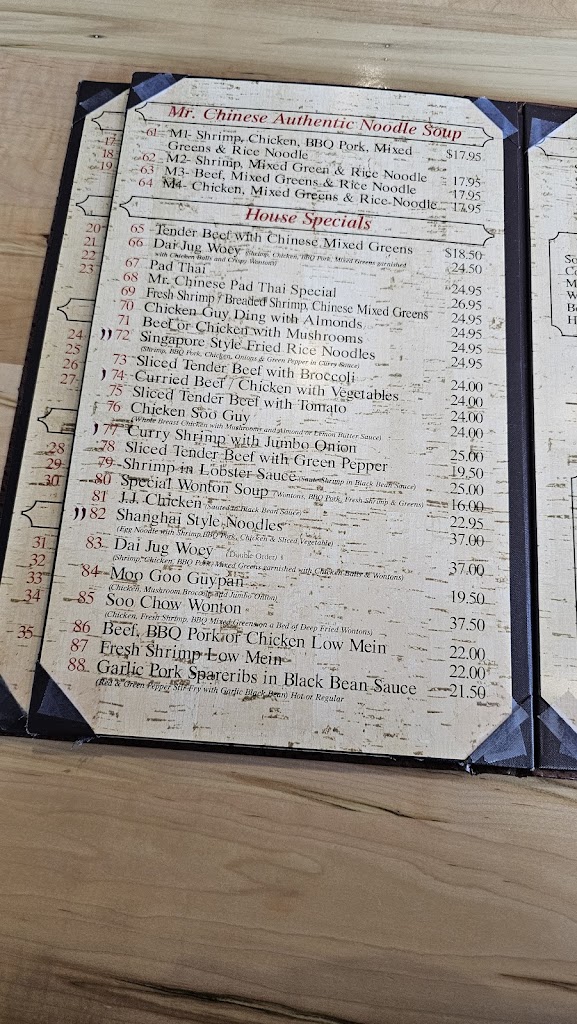 Mr. Chinese Authentic Noodle Soup
61 M1- Shrimp, Chicken, BBQ Pork, Mixed
Greens & Rice Noodle $17.95
62 M2- Shrimp, Mixed Green & Rice Noodle 17.95
63 M3- Beef, Mixed Greens & Rice Noodle 17.95
64 M4- Chicken, Mixed Greens & Rice Noodle 17.95
House Specials
65 Tender Beef with Chinese Mixed Greens $18.50
66 Dai Jug Woey (Shrimp, Chicken, BBQ Pork, Mixed Greens garnished 24.50
with Chicken Balls and Crispy Wontons)
67 Pad Thai 24.95
68 Mr. Chinese Pad Thai Special 26.95
69 Fresh Shrimp / Breaded Shrimp, Chinese Mixed Greens 24.95
70 Chicken Guy Ding with Almonds 24.95
71 Beef or Chicken with Mushrooms 24.95
72 Singapore Style Fried Rice Noodles 24.95
(Shrimp, BBQ Pork, Chicken, Onions & Green Pepper in Curry Sauce)
73 Sliced Tender Beef with Broccoli 24.00
74 Curried Beef / Chicken with Vegetables 24.00
75 Sliced Tender Beef with Tomato 24.00
76 Chicken Soo Guy 24.00
(Whole Breast Chicken with Mushrooms and Almond or Lemon Butter Sauce)
77 Curry Shrimp with Jumbo Onion 25.00
78 Sliced Tender Beef with Green Pepper 19.50
79 Shrimp in Lobster Sauce (Saute Shrimp in Black Bean Sauce) 25.00
80 Special Wonton Soup (Wontons, BBQ Pork, Fresh Shrimp & Greens) 16.00
81 J.J. Chicken (Sauteed in Black Bean Sauce) 22.95
82 Shanghai Style Noodles 37.00
(Egg Noodle with Shrimp, BBQ Pork, Chicken & Sliced Vegetable)
83 Dai Jug Woey (Double Order) 37.00
(Shrimp, Chicken, BBQ Pork) Mixed Greens garnished with Chicken Balls & Wontons)
84 Moo Goo Guypan 19.50
(Chicken, Mushroom, Broccoli and Jumbo Onion)
85 Soo Chow Wonton 37.50
(Chicken, Fresh Shrimp, BBQ Mixed Greens on a Bed of Deep Fried Wontons)
86 Beef, BBQ Pork or Chicken Low Mein 22.00
87 Fresh Shrimp Low Mein 22.00
88 Garlic Pork Spareribs in Black Bean Sauce 21.50
(Red & Green Pepper Stir Fry with Garlic Black Bean) Hot or Regular
17
18
19
20
21
22
23
24
25
26
27
28
29
30
31
32
33
34
35